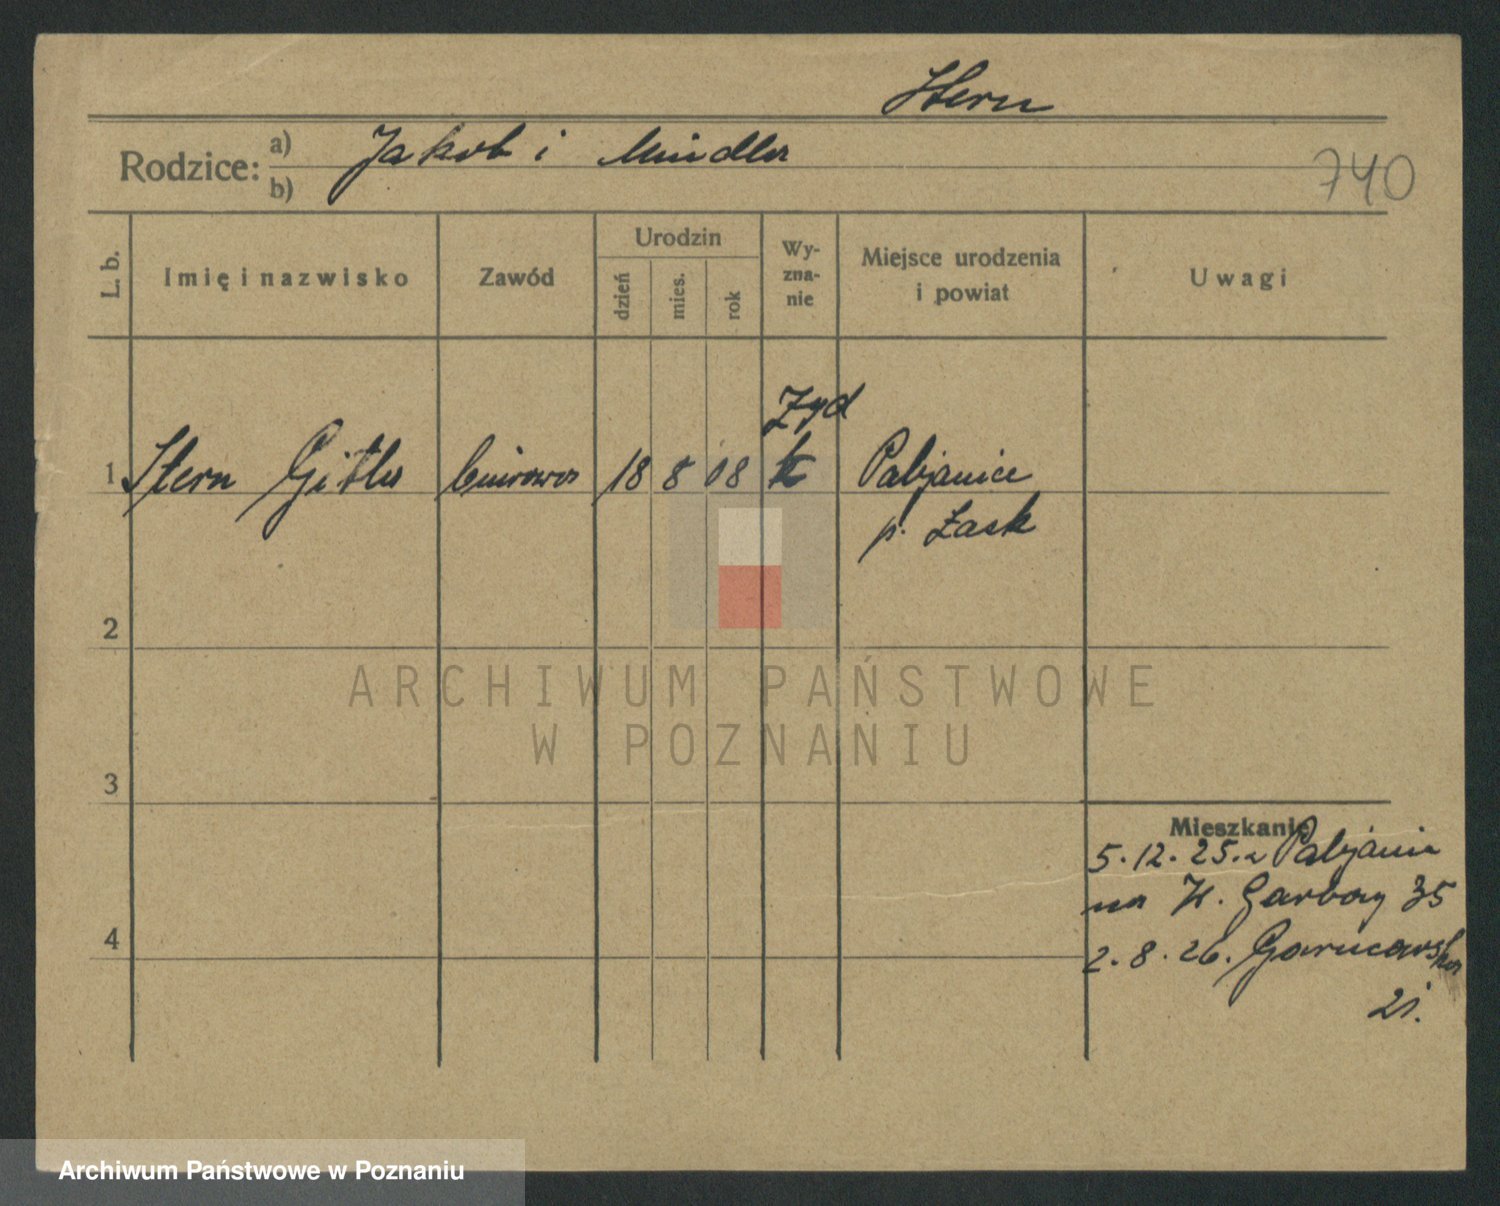 Stern
Rodzice: a) Jakob i Mindla
b)
740
L. b.
Imię i nazwisko
Zawód
Urodzin
dzień
mies.
rok
Wy-
zna-
nie
Miejsce urodzenia
i powiat
Uwagi
Zyd
1 Stern Gitla biurowa 18 8 08 Pabjanice
p. Łask
2
ARCHIWUM PAŃSTWOWE
W POZNANIU
3
Mieszkanie
5.12.25. z Pabjanic
na W. Garbary 35
4
2.8.26. Garncarska
21.
Archiwum Państwowe w Poznaniu